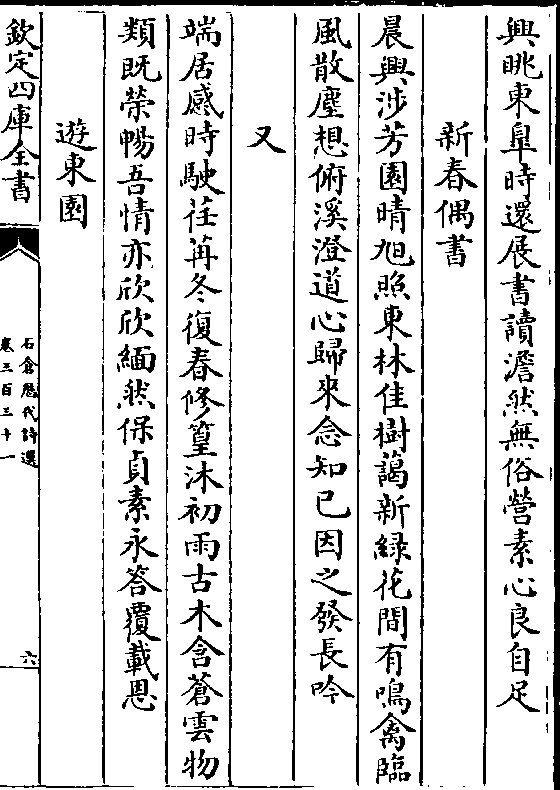 興眺東皐時還展書讀澹然無俗營素心良自足
新春偶書
晨興涉芳園晴旭照東林佳樹藹新綠花間有鳴禽臨
風散塵想俯溪澄道心歸來念知已因之發長吟
又
端居感時駛荏苒冬復春修篁沐初雨古木含蒼雲物
類既榮暢吾情亦欣欣緬然保貞素永答覆載恩
遊東園
欽定四庫全書
石倉歷代詩選
卷三百三十一
六